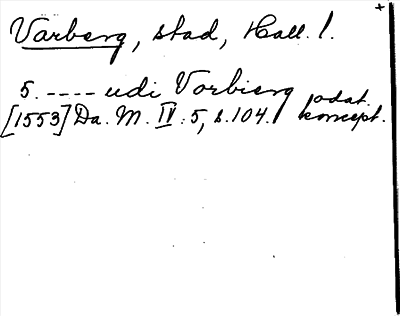 +
Varberg, stad, Hall. l.
5. ---- udi Vorbierg odat.
[1553] Da. M. IV: 5, s. 104. koncept.